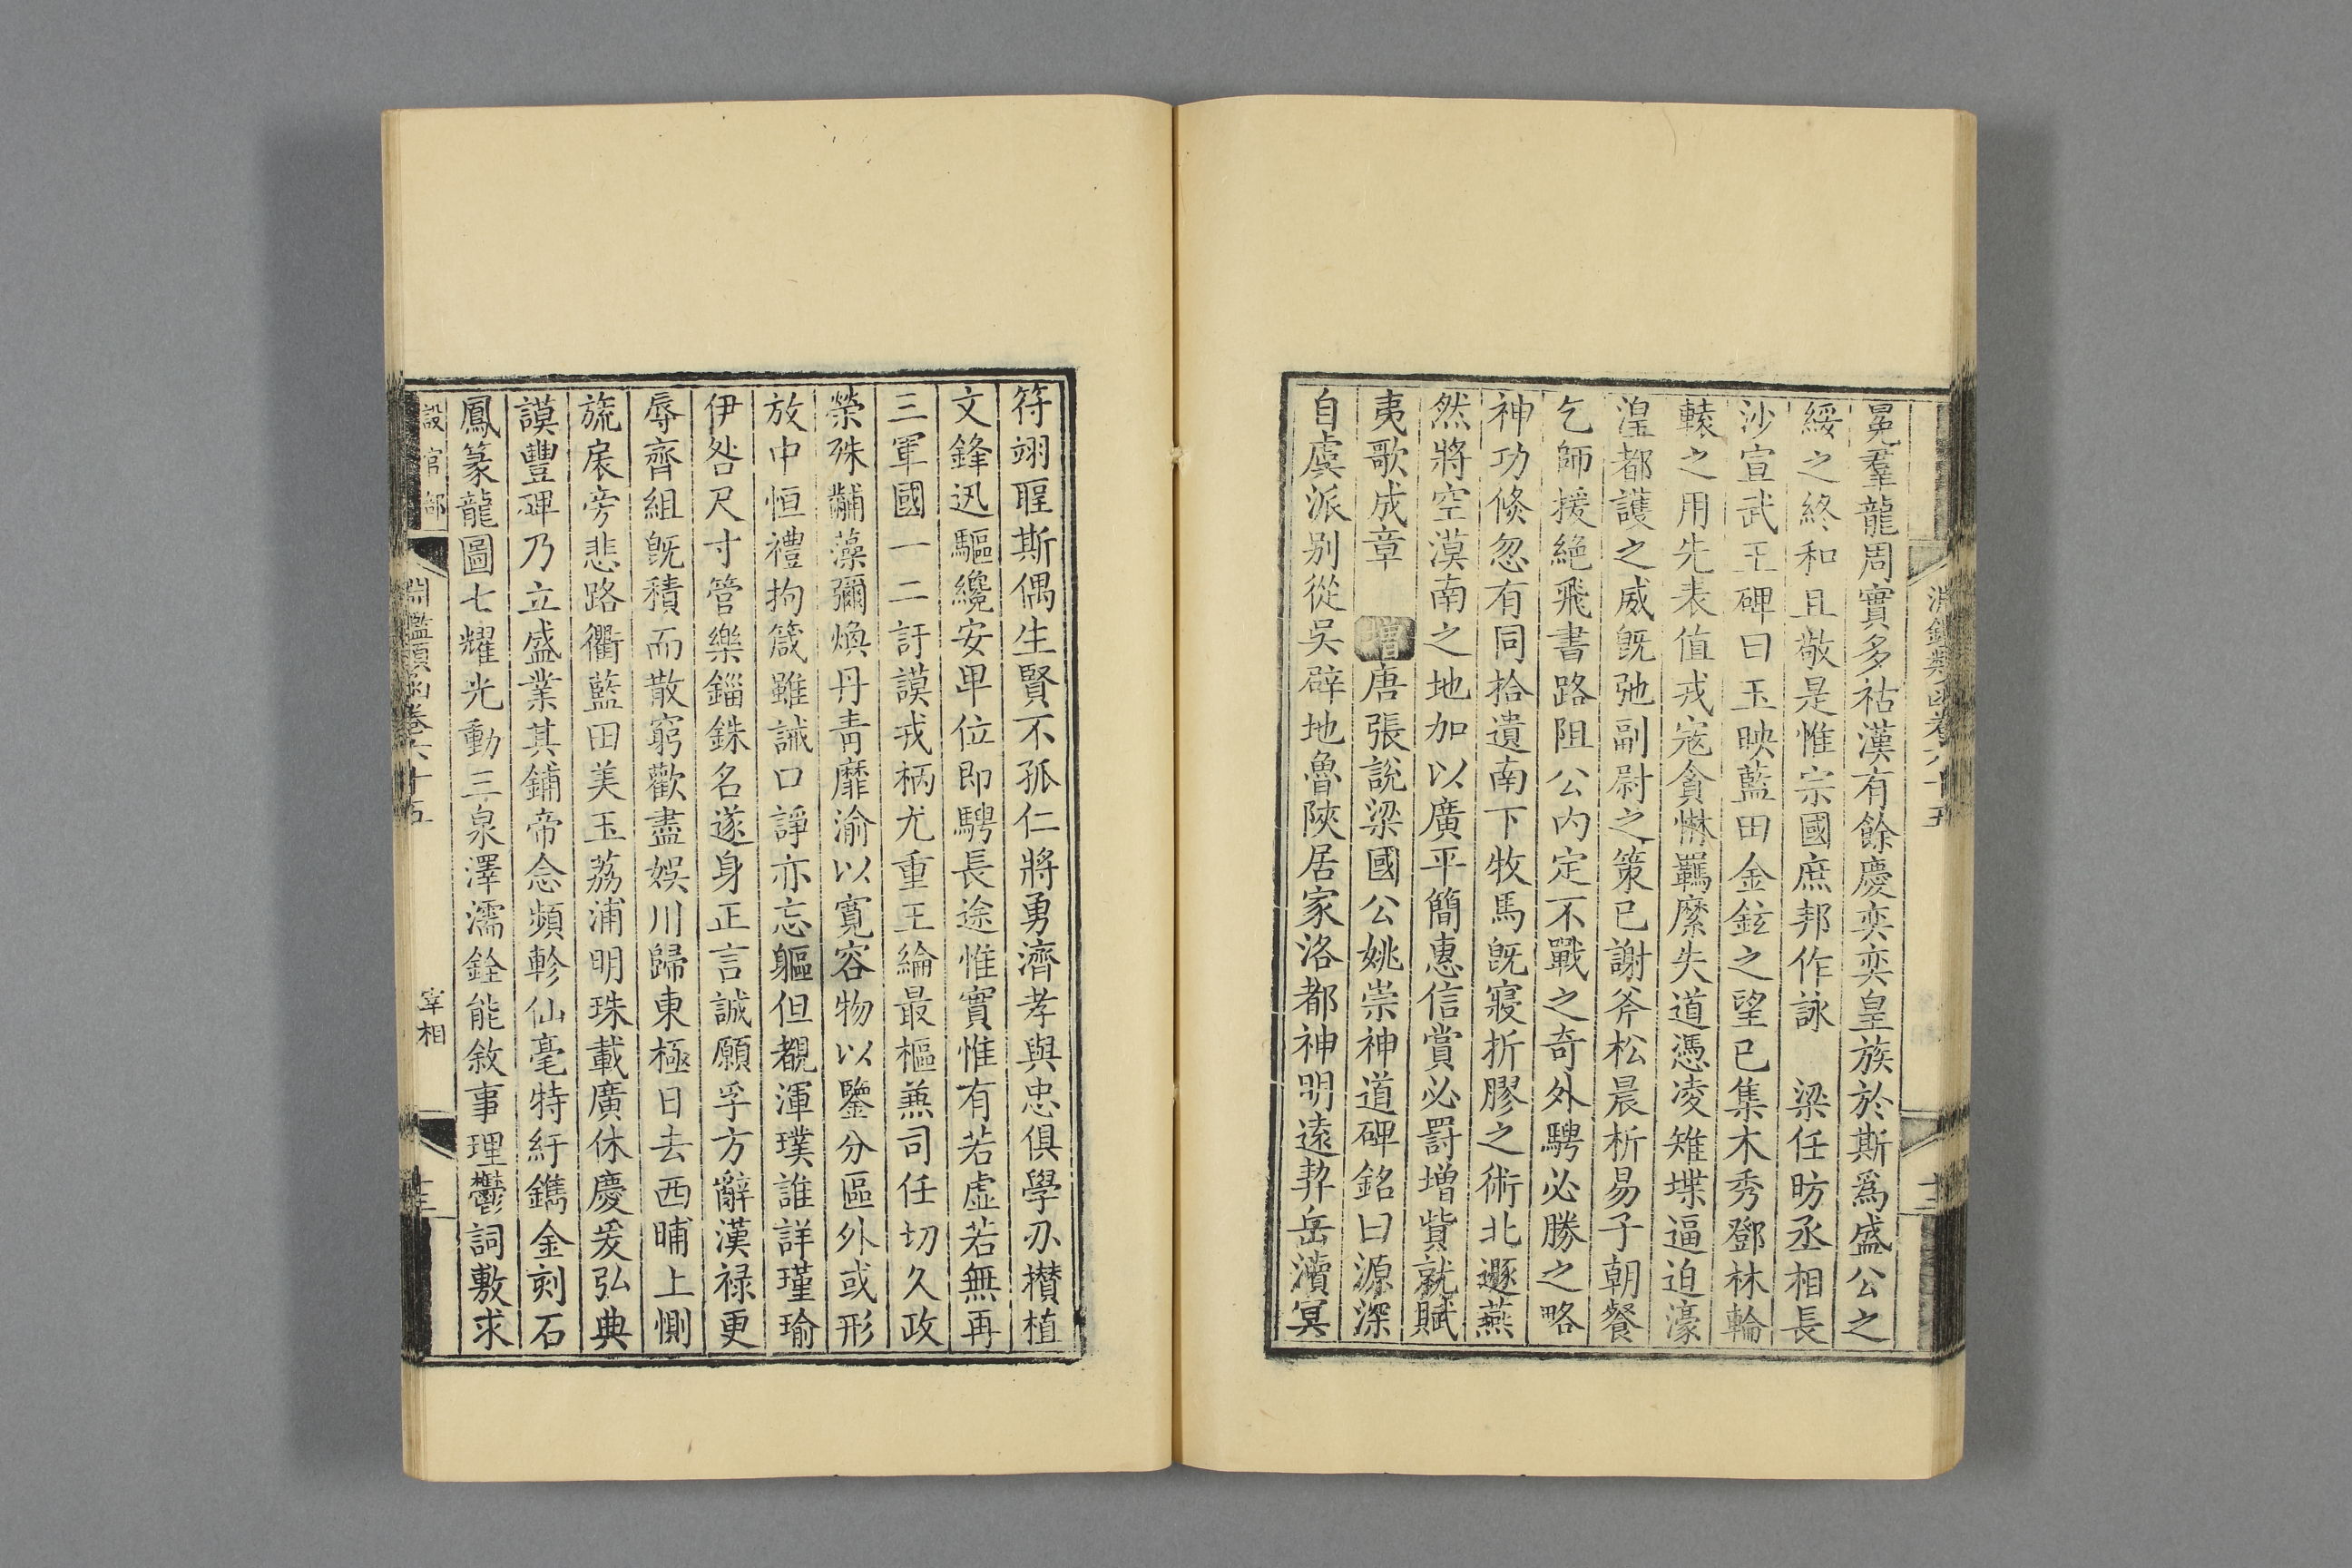 淵鑑類函卷六十五
冕羣龍周實多祜漢有餘慶奕奕皇族於斯爲盛公之
綏之終和且敬是惟宗國庶邦作詠　梁任昉丞相長
沙宣武王碑曰玉映藍田金鉉之望已集木秀鄧林輪
轅之用先表值戎寇貪惏羈縻失道憑凌雉堞逼迫濠
湟都護之威旣弛副尉之策已謝斧松晨析易子朝餐
乞師援絶飛書路阻公内定不戰之奇外騁必勝之略
神功倏忽有同拾遺南下牧馬旣寢折膠之術北遯燕
然將空漠南之地加以廣平簡惠信賞必罸增貲就賦
夷歌成章　增唐張說梁國公姚崇神道碑銘曰源深
自虞派别從吳辟地魯陜居家洛都神明遠契岳瀆冥
符翊聖斯偶生賢不孤仁將勇濟孝與忠俱學刅攢植
文鋒迅驅纔安卑位即騁長途惟實惟有若虛若無再
三軍國一二訏謨戎柄尤重王綸最樞兼司任切久政
榮殊黼藻彌煥丹靑靡渝以寛容物以鑒分區外或形
放中恒禮拘箴雖誡口諍亦忘軀但覩渾璞誰詳瑾瑜
伊咎尺寸管樂錙銖名遂身正言誠願孚方辭漢禄更
辱齊組旣積而散窮歡盡娛川歸東極日去西晡上惻
旒扆旁悲路衢藍田美玉荔浦明珠載廣休慶爰弘典
謨豐碑乃立盛業其鋪帝念頻軫仙毫特紆鐫金刻石
鳳篆龍圖七耀光動三泉澤濡銓能敘事理鬱詞敷求
設官部
淵鑑類函卷六十五
宰相